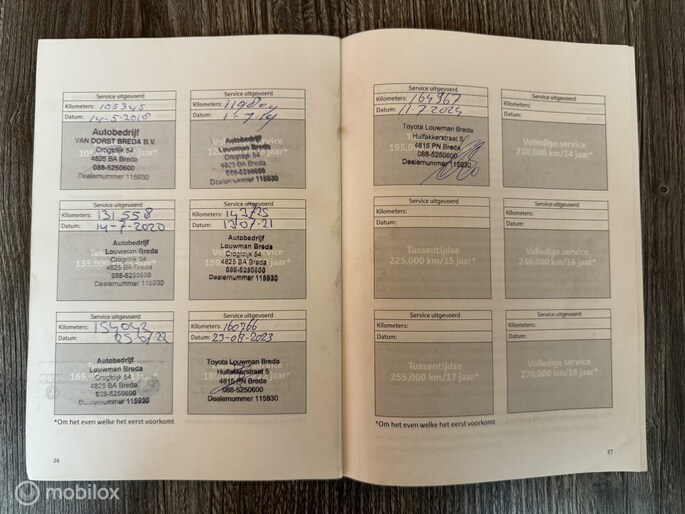 Service uitgevoerd
Kilometers: 105345
Datum: 14-5-2018
Autobedrijf
VAN DORST BREDA B.V.
Crogtdijk 54
4825 BA Breda
088-5250600
Dealernummer 115930
Service uitgevoerd
Kilometers:
Datum:
Autobedrijf
Louwman Breda
Crogtdijk 54
4825 BA Breda
088-5250600
Dealernummer 115930
Service uitgevoerd
Kilometers: 131558
Datum: 14-7-2020
Autobedrijf
Louwman Breda
Crogtdijk 54
4825 BA Breda
088-5250600
Dealernummer 115930
Service uitgevoerd
Kilometers:
Datum:
Autobedrijf
Louwman Breda
Crogtdijk 54
4825 BA Breda
088-5250600
Dealernummer 115930
Service uitgevoerd
Kilometers: 154042
Datum:
Autobedrijf
Louwman Breda
Crogtdijk 54
4825 BA Breda
088-5250600
Dealernummer 115930
Service uitgevoerd
Kilometers: 160766
Datum:
Toyota Louwman Breda
Huifakkerstraat 5
4815 PN Breda
088-5250600
Dealernummer 115930
*Om het even welke het eerst voorkomt
26
Service uitgevoerd
Kilometers: 164967
Datum: 11 7 2024
Toyota Louwman Breda
Huifakkerstraat 5
4815 PN Breda
088-5250600
Dealernummer 115930
Service uitgevoerd
Kilometers:
Datum:
Volledige service
210,000 km/14 jaar*
Service uitgevoerd
Kilometers:
Datum:
Tussentijdse
225,000 km/15 jaar*
Service uitgevoerd
Kilometers:
Datum:
Volledige service
240,000 km/16 jaar*
Service uitgevoerd
Kilometers:
Datum:
Tussentijdse
255,000 km/17 jaar*
Service uitgevoerd
Kilometers:
Datum:
Volledige service
270,000 km/18 jaar*
*Om het even welke het eerst voorkomt
27
mobilox